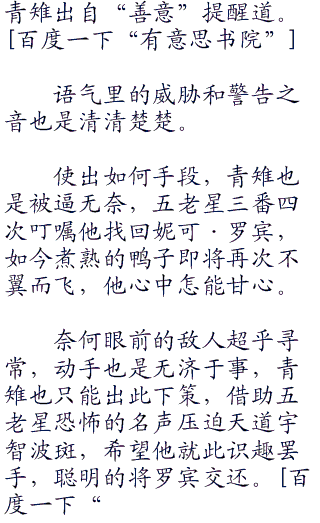 青雉出自“善意”提醒道。
[百度一下“有意思书院”]
语气里的威胁和警告之
音也是清清楚楚。
使出如何手段，青雉也
是被逼无奈，五老星三番四
次叮嘱他找回妮可·罗宾，
如今煮熟的鸭子即将再次不
翼而飞，他心中怎能甘心。
奈何眼前的敌人超乎寻
常，动手也是无济于事，青
雉也只能出此下策，借助五
老星恐怖的名声压迫天道宇
智波斑，希望他就此识趣罢
手，聪明的将罗宾交还。[百
度一下“